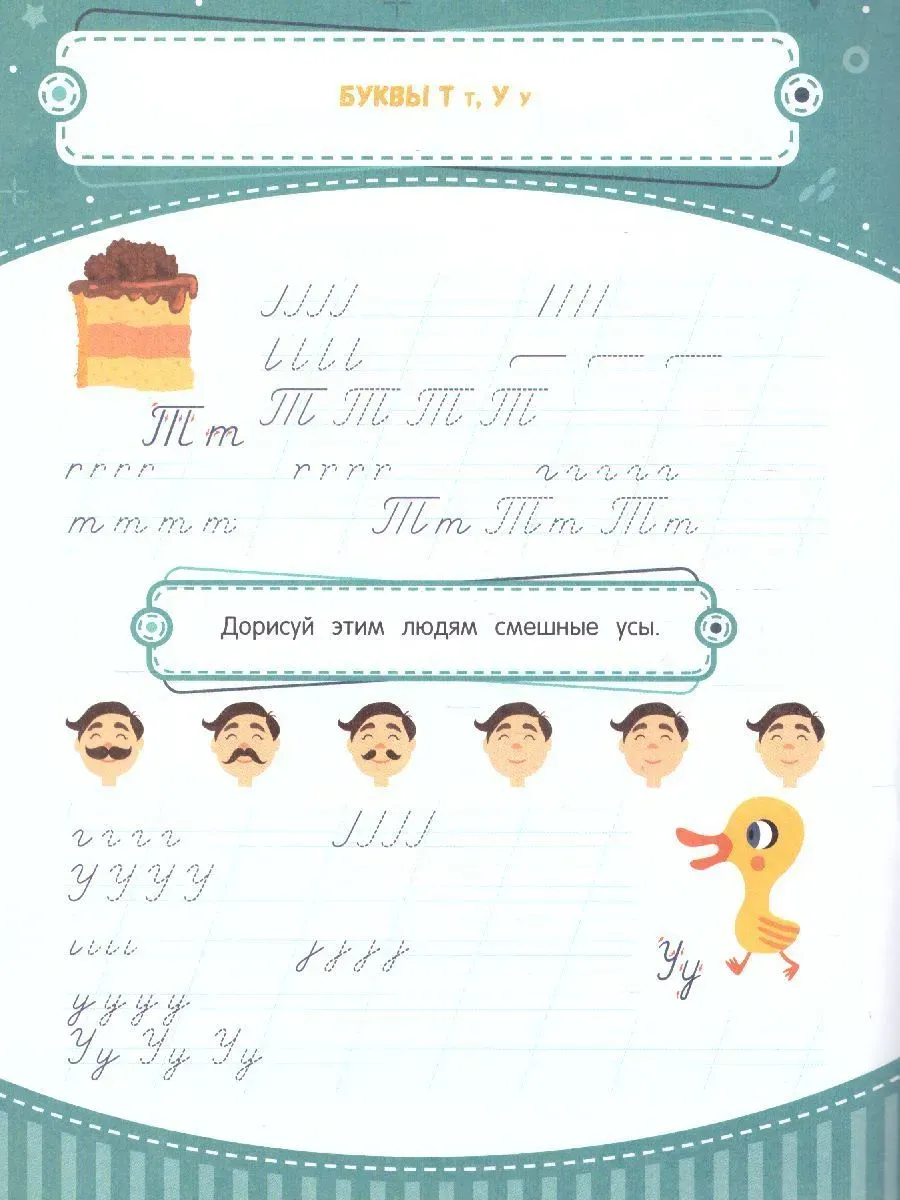 БУКВЫ Т т, У у
Т Т Т Т
Т т
т т т т Тт Тт Тт
Дорисуй этим людям смешные усы.
У У У У
Уу
у у у у
Уу Уу Уу